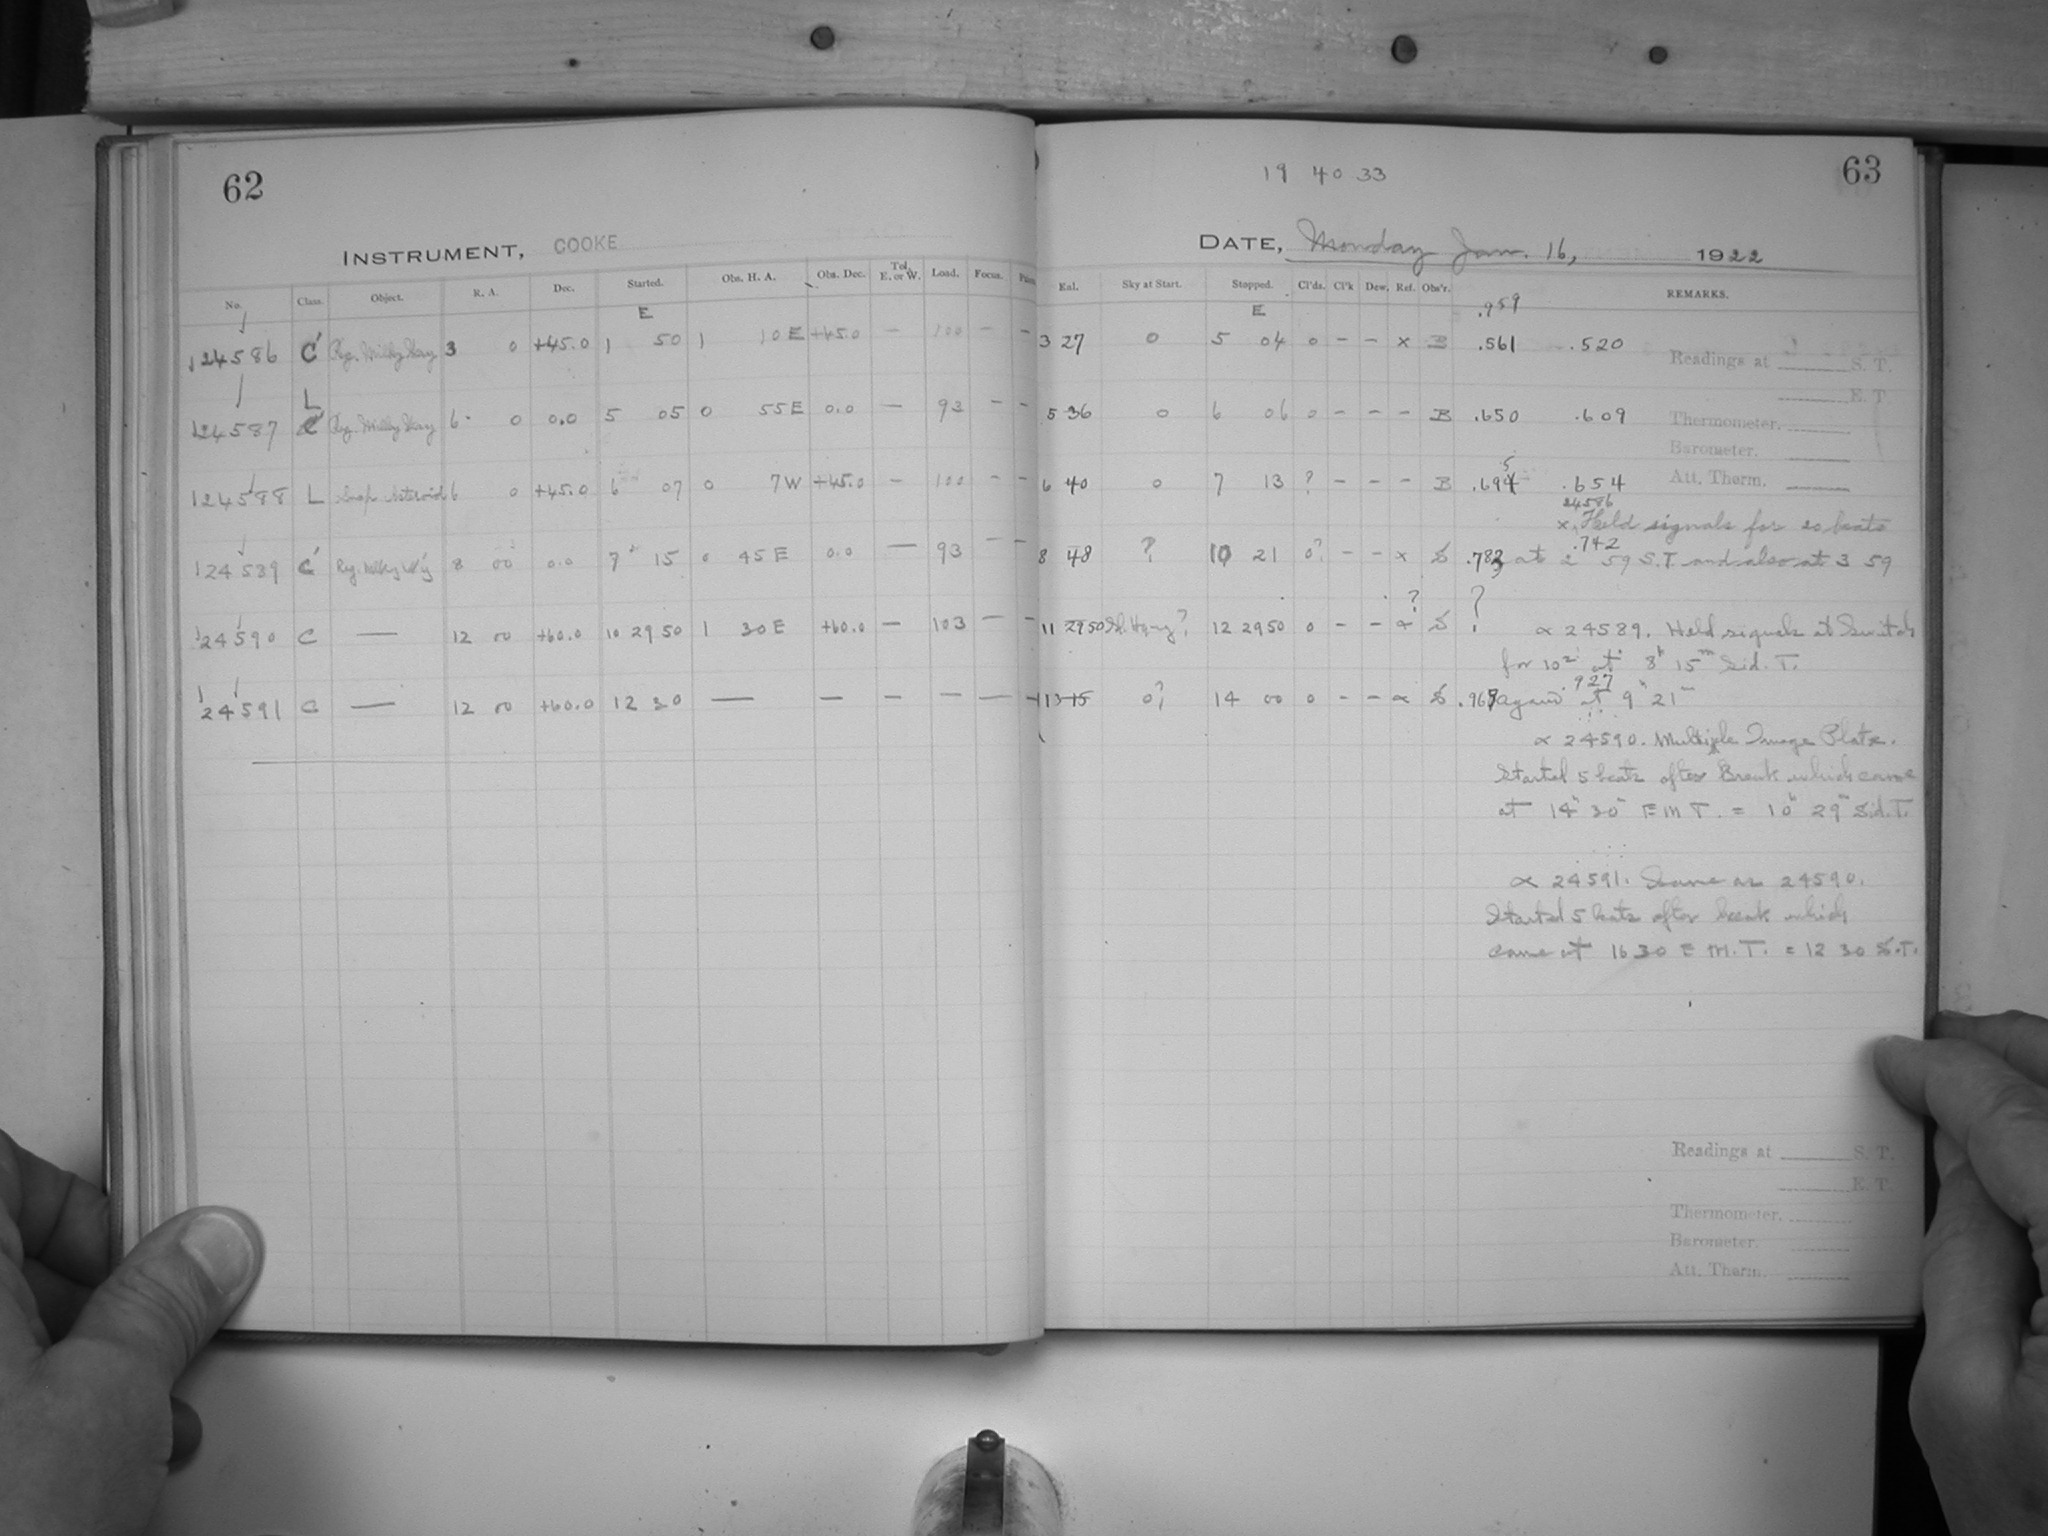 62
INSTRUMENT, COOKE
No. Class. Object. R. A. Dec. Started. Obs. H. A. Obs. Dec. Tel. E. or W. Load. Focus.
E
24586 C' Reg. Milky Way 3 0 +45.0 1 50 1 10 E +45.0 — 100 — —
L
24587 C' Reg. Milky Way 6 0 0.0 5 05 0 55 E 0.0 — 93 — —
24588 L Asteroid 6 0 +45.0 6 07 0 7 W +45.0 — 100 — —
24589 C' Reg. Milky W'y 8 00 0.0 7 15 0 45 E 0.0 — 93 — —
24590 C — 12 00 +60.0 10 29 50 1 30 E +60.0 — 103 — —
24591 C — 12 00 +60.0 12 30 — — — — — —
19 40 33
63
DATE, Monday Jan. 16, 1922
Eal. Sky at Start. Stopped. Cl'ds. Cl'k Dew. Ref. Obs'r. REMARKS.
E .959
3 27 0 5 04 0 - - x B .561 .520
Readings at S. T.
E. T
5 36 0 6 06 0 - - - B .650 .609
Thermometer.
Barometer.
5
6 40 0 7 13 ? - - - B .694 .654
Att. Therm.
24586
x Held signals for 20 beats
.742
8 48 ? 10 21 0? - - x S .783 at 2 59 S.T. and also at 3 59
? ?
11 29 50 ? 12 29 50 0 - - α S
α 24589. Held signals at Switch
for 10s at 8h 15m Sid. T.
.927
13 15 0? 14 00 0 - - α S .967 again at 9h 21m
α 24590. Multiple Image Plate.
Started 5 beats after Break which came
at 14h 30m E M T. = 10h 29m Sid. T.
α 24591. Same as 24590.
Started 5 beats after break which
came at 16 30 E M. T. = 12 30 S.T.
Readings at S. T.
E. T
Thermometer.
Barometer.
Att. Therm.